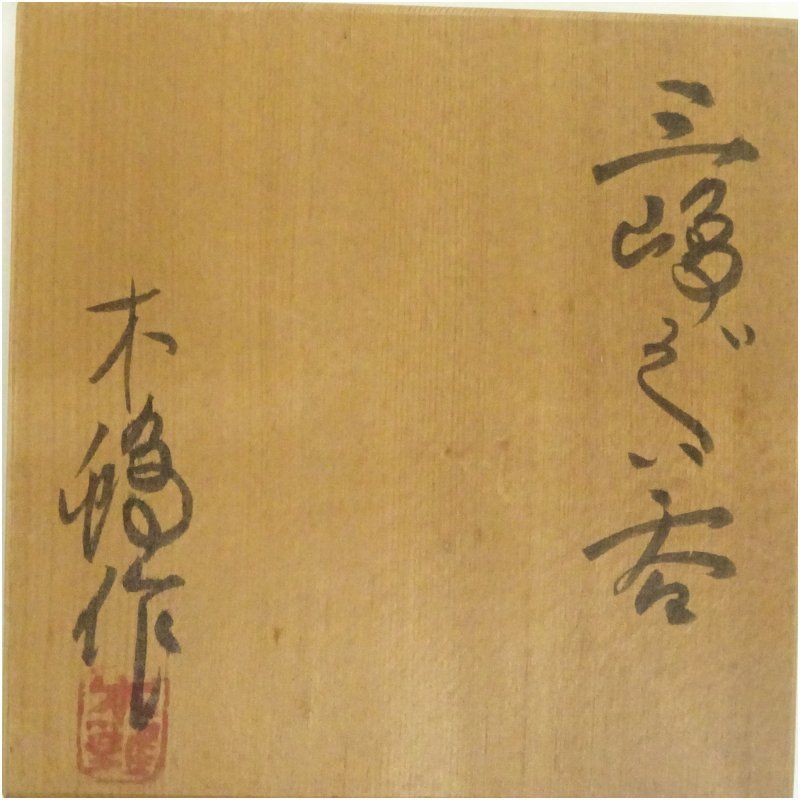 三嶋ぐい呑
木嶋作